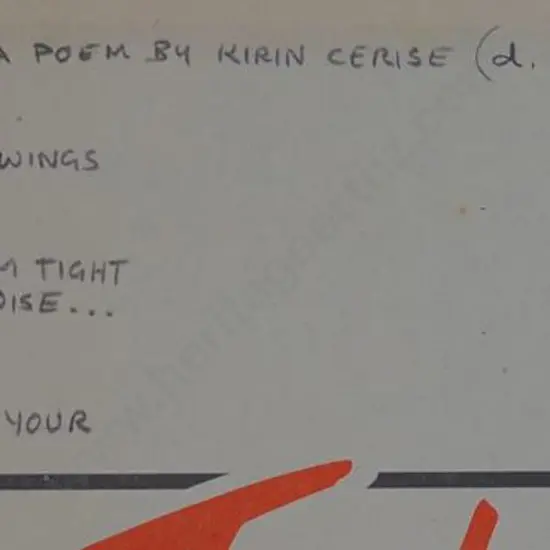 A POEM BY KIRIN CERISE (d.
WINGS
TIGHT
OISE...
YOUR